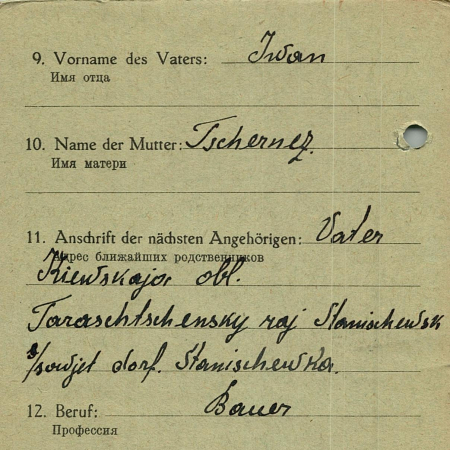 9. Vorname des Vaters: Iwan
Имя отца
10. Name der Mutter: Tschernez.
Имя матери
11. Anschrift der nächsten Angehörigen: Vater
Адрес ближайших родственников
Kiewskaja obl.
Taraschtschensky raj Stanischewsk
s/sowjet dorf. Stanischewka.
12. Beruf: Bauer
Профессия